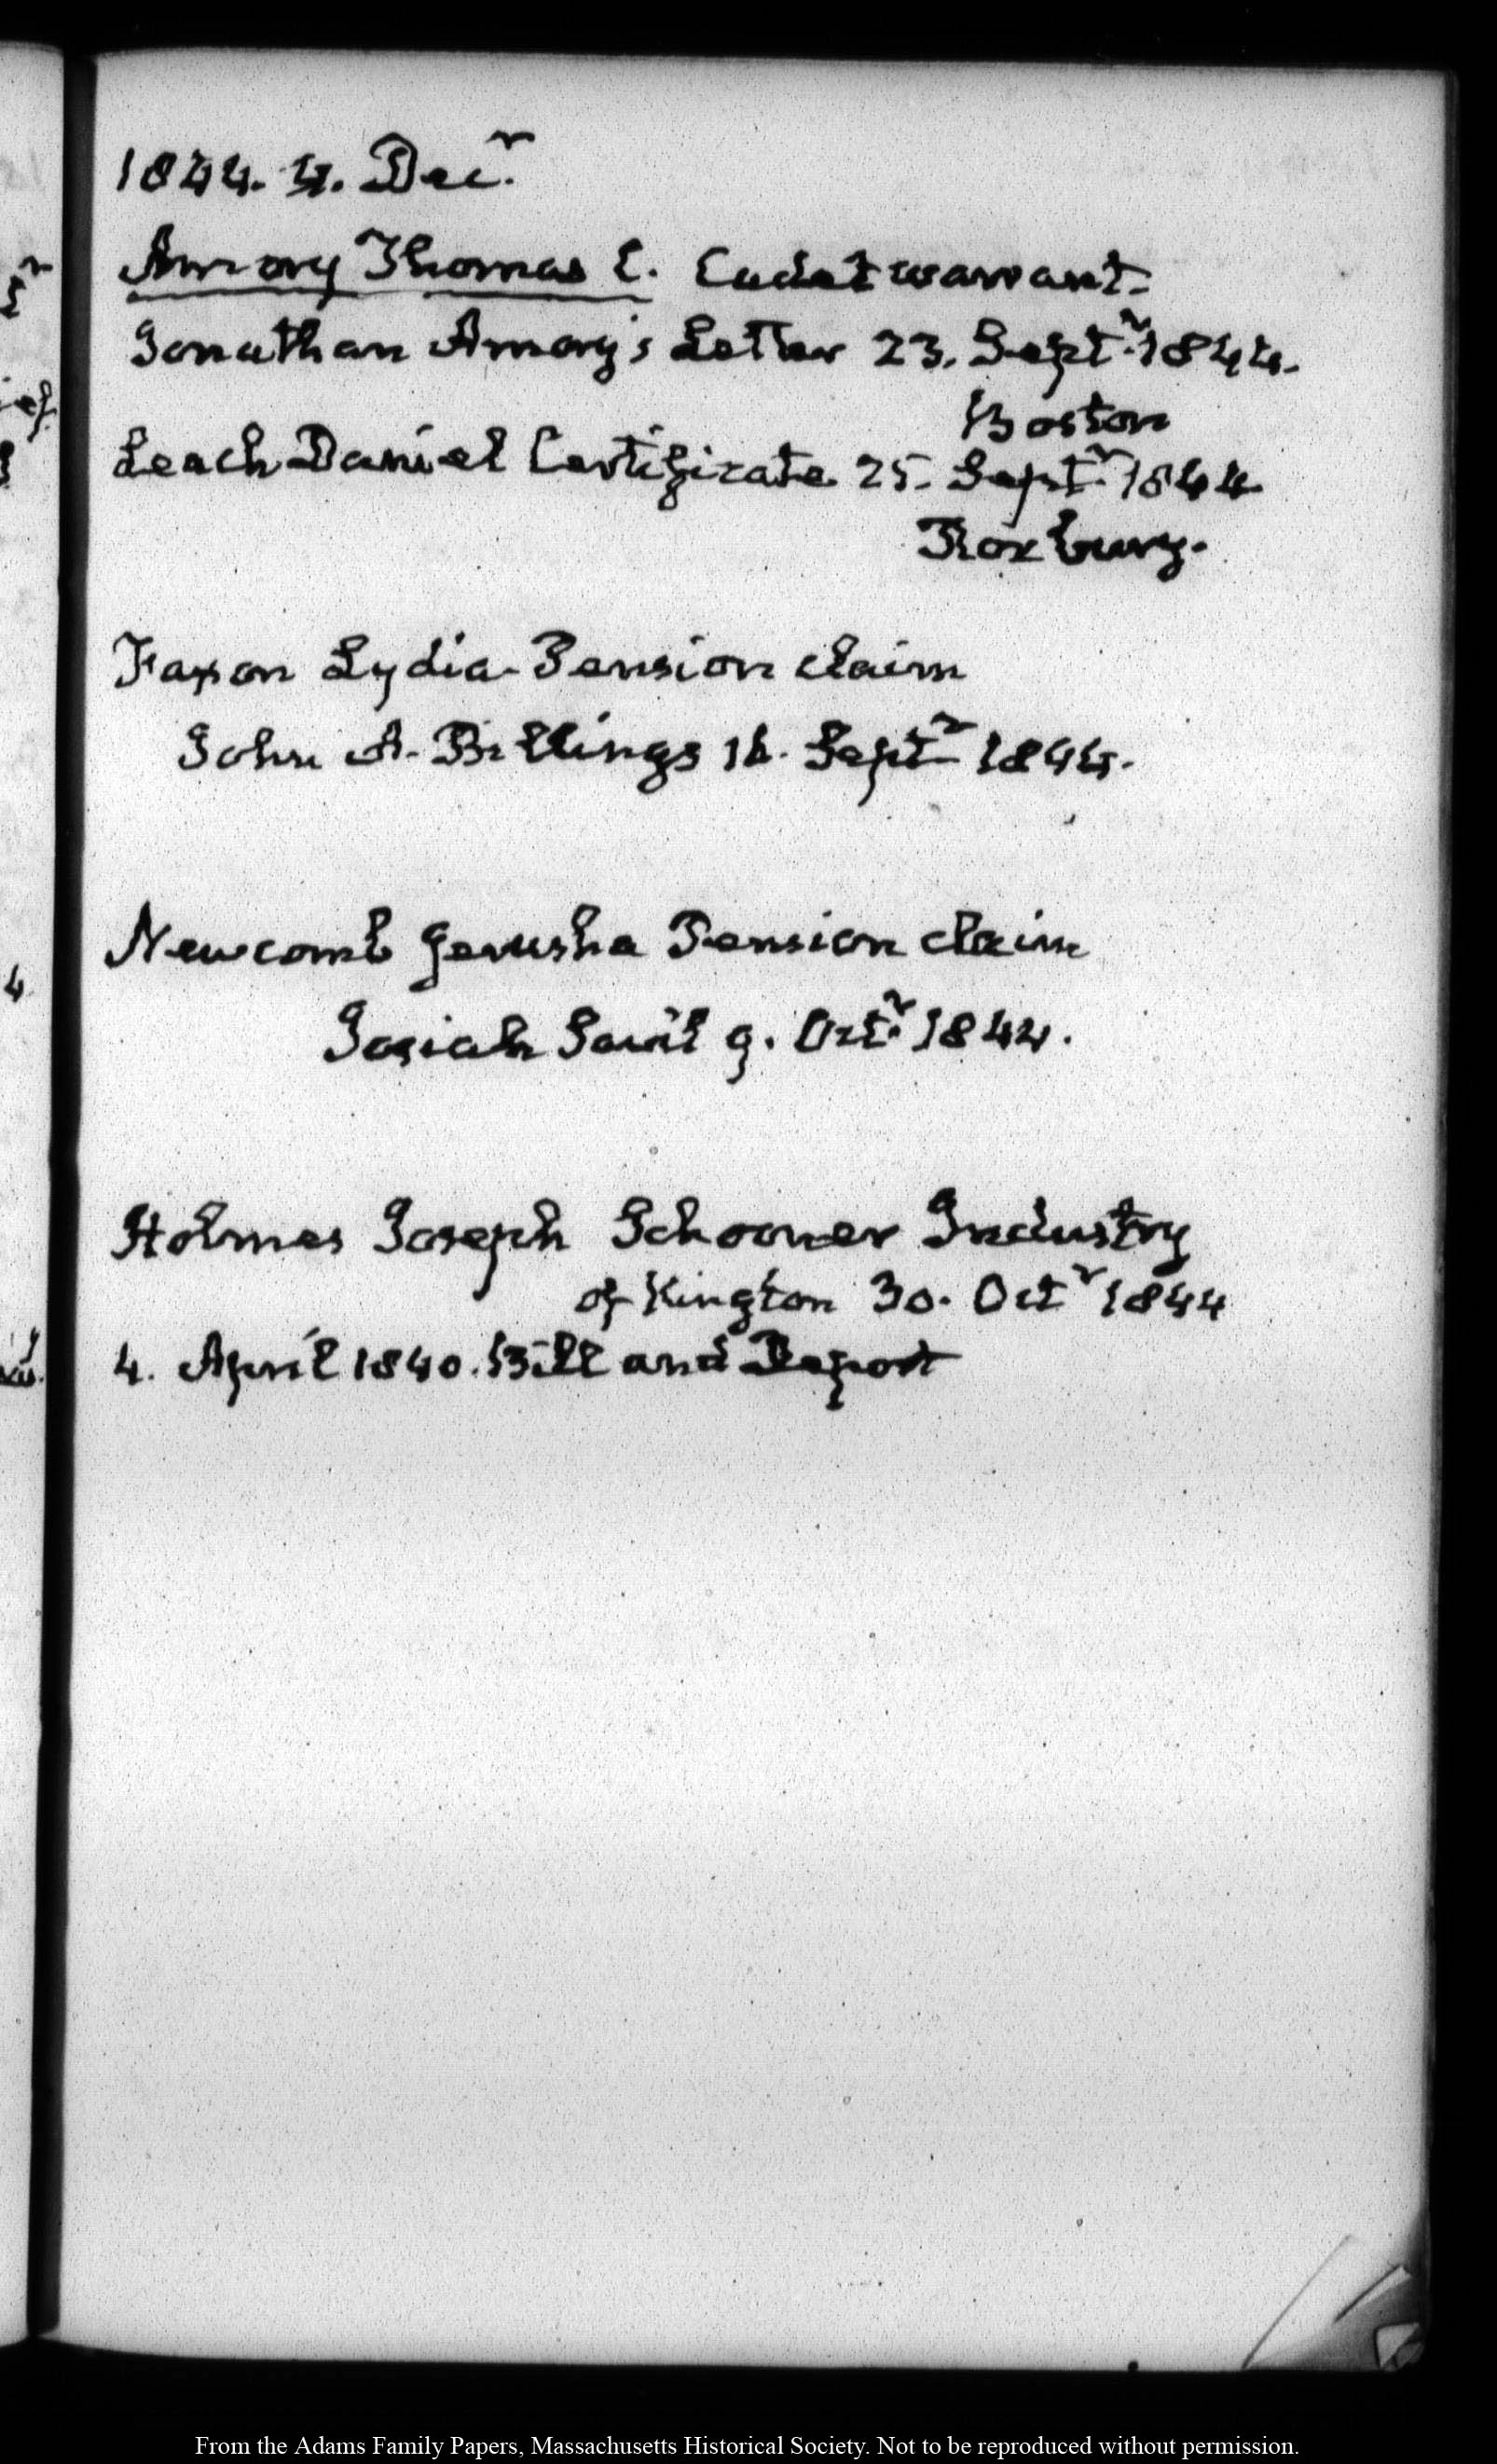 1844. 4. Decr.
Amory Thomas C. Cadet warrant.
Jonathan Amory's Letter 23. Septr. 1844.
Boston
Leach Daniel Certificate 25. Septr. 1844
Roxbury.
Faxon Lydia Pension claim
John A. Billings 16. Septr 1844.
Newcomb Jerusha Pension claim
Josiah Savil 9. Octr. 1844.
Holmes Joseph Schooner Industry
of Kington 30. Octr 1844
4. April 1840. Bill and Report
From the Adams Family Papers, Massachusetts Historical Society. Not to be reproduced without permission.